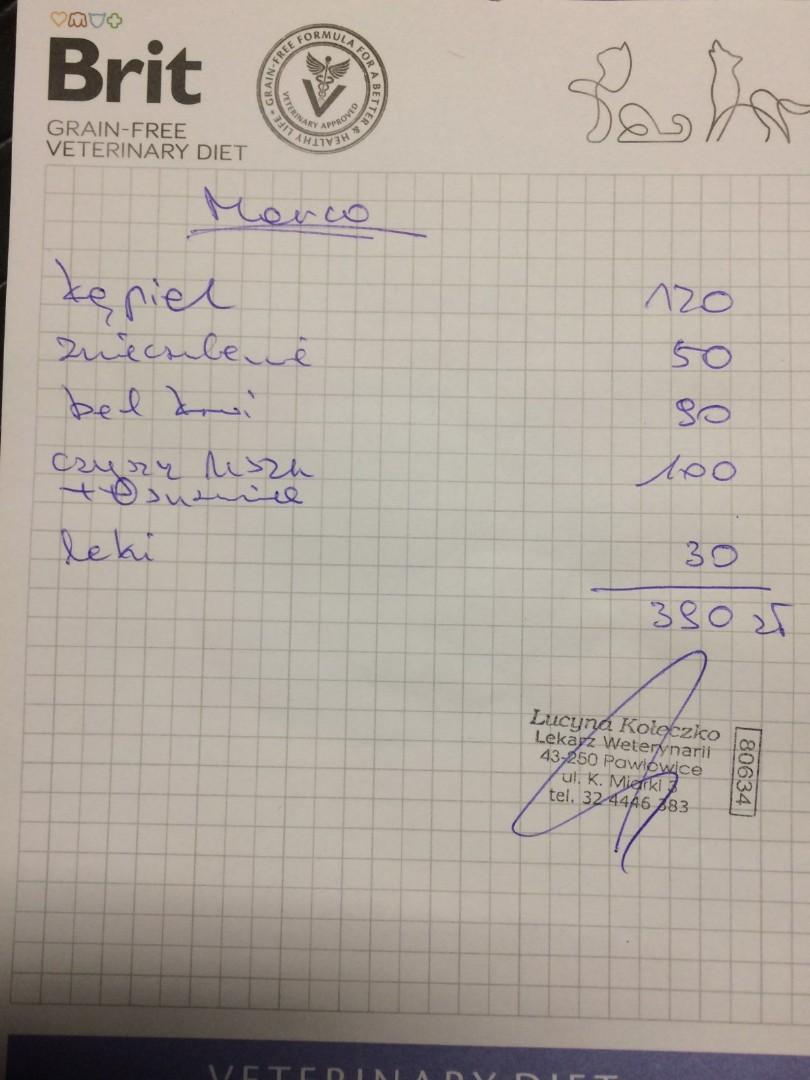 Brit
GRAIN-FREE
VETERINARY DIET
GRAIN-FREE FORMULA FOR A BETTER & HEALTHY LIFE
VETERINARY APPROVED
Marco
kąpiel 120
znieczulenie 50
bad krwi 90
czyszcz uszu 100
+
leki 30
390 zł
Lucyna Kołeczko
Lekarz Weterynarii
43-250 Pawłowice
ul. K. Miarki 3
tel. 32 4446 383
80634
VETERINARY DIET